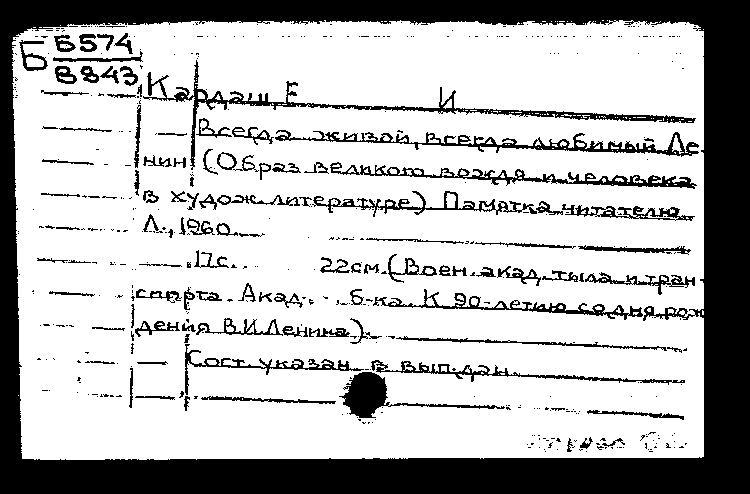 Б Б574
В843
Кардаш, Е И
Всегда живой, всегда любимый Ле-
нин (Образ великого вождя и человека
в худож. литературе) Памятка читателю
Л., 1960.
17с. 22см. (Воен. акад. тыла и тран-
спорта. Акад. б-ка. К 90-летию со дня рож
дения В.И.Ленина).
Сост. указан. в вып.дан.